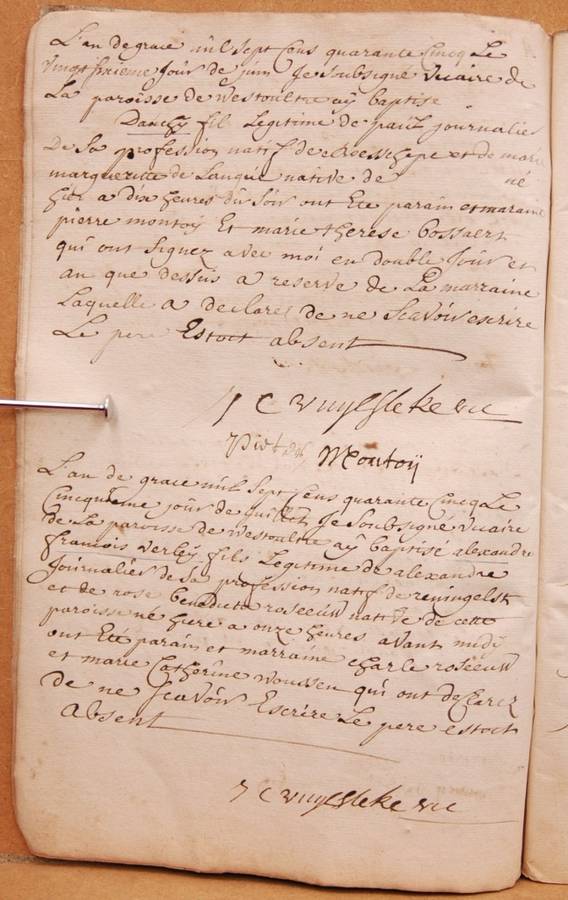 L'an de grace mil sept cens quarante cinq Le
vingt sixieme jour de juin Je soubsigné vicaire de
La paroisse de westoultre aÿ baptisé
fils Legitime de paul journalier
De sa profession natif de et de marie
marguerite de Langue native de né
hier a dix heures du soir ont Ete parain et maraine
pierre montoÿ Et marie therese bossaert
qui ont signez avec moi en double Jour et
an que dessus a reserve de La marraine
Laquelle a declarez de ne scavoir escrire
Le pere Estoit absent
J C vuylsteke vic
Pieter Montoÿ
L'an de grace mil sept cens quarante cinq Le
cincquieme jour de juillet Je soubsigné vicaire
de La paroisse de westoultre aÿ baptisé alexandre
francois verleÿ fils Legitime de alexandre
Journalier de sa profession natif de reningelst
et de rose benedicte roseeuw native de cette
paroisse né hiere a onze heures avant midÿ
ont Ete parain et marraine charle roseeuw
et marie Catherine woussen qui ont declarez
de ne scavoir Escrire Le pere estoit
absent
J C vuylsteke vic